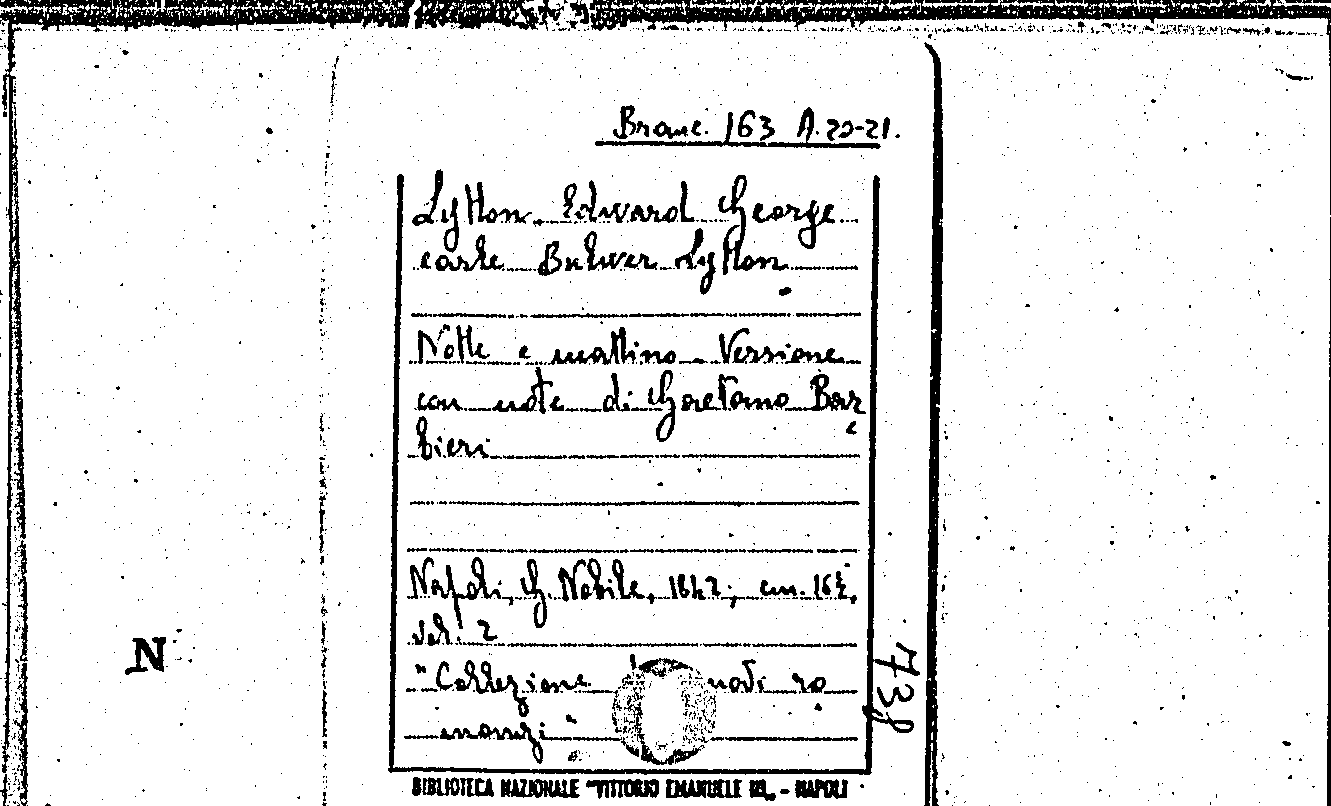 Branc. 163 A. 20-21.
Lytton Edward George
earle Bulwer Lytton
Notte e mattino. Versione
con note di Gaetano Bar
bieri
Napoli, G. Nobile, 1842; cm. 16½,
vol. 2
"Collezione nuovi ro
manzi"
738
N
BIBLIOTECA NAZIONALE "VITTORIO EMANUELE III„ - NAPOLI